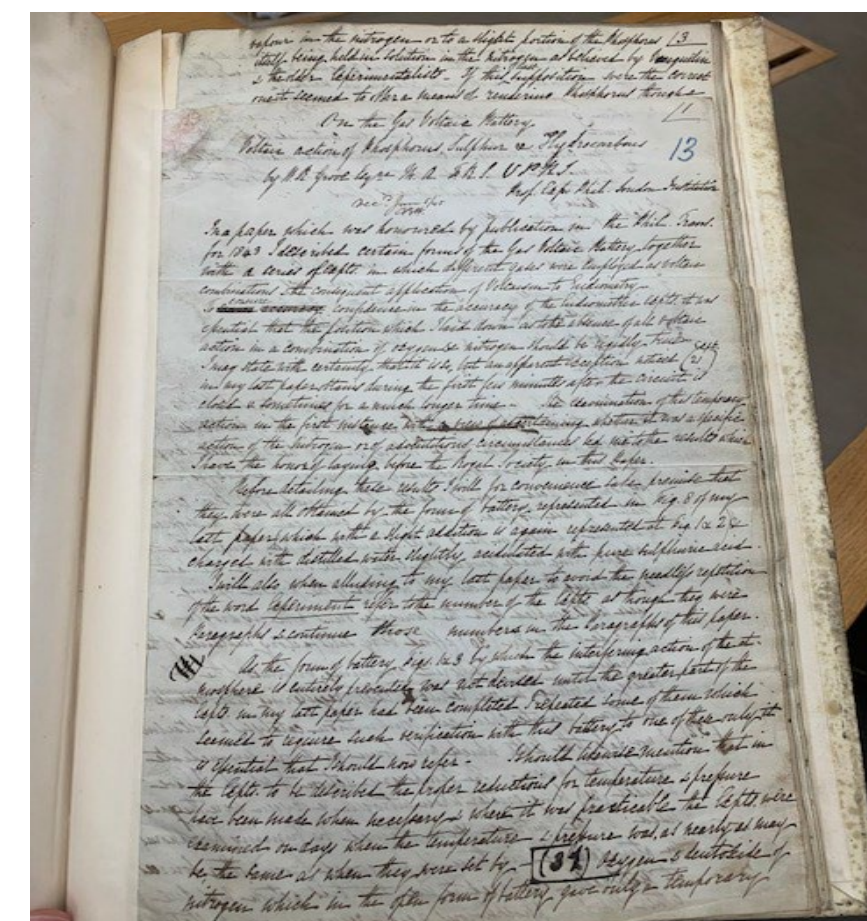 vapour in the nitrogen or to a slight portion of the Phosphorus 13
itself being held in solution in the nitrogen as believed by Vauquelin
& the older Experimentalists. If this supposition were the correct
one it seemed to offer a means of rendering Phosphorus though a
On the Gas Voltaic Battery
11
13
Voltaic action of Phosphorus, Sulphur & Hydrocarbons
by W R Grove Esqre M. A. F.R.S. V P R I.
Prof. Exp. Phil. London Institution
In a paper which was honoured by publication in the Phil. Trans.
for 1843 I described certain forms of the Gas Voltaic Battery, together
with a series of Expts. in which different gases were employed as voltaic
combinations & the consequent application of Voltaism to Eudiometry.
To ensure confidence in the accuracy of the Eudiometric Expts. it was
essential that the position which I laid down as to the absence of all voltaic
action in a combination of oxygen & nitrogen should be rigidly true
I may state with certainty that it is so, but an apparent exception noticed (Expt 21)
in my last paper obtains during the first few minutes after the circuit is
closed & sometimes for a much longer time - The examination of this temporary
action in the first instance with a view of ascertaining whether it was a specific
action of the nitrogen or of adventitious circumstances led me to the results which
I have the honor of laying before the Royal Society in this Paper.
Before detailing these results I will for convenience sake premise that
they were all obtained by the form of battery represented in fig. 8 of my
last paper, which with a slight addition is again represented at fig 1 & 2 &
charged with distilled water slightly acidulated with pure sulphuric acid.
I will also when alluding to my last paper to avoid the needless repetition
of the word Experiment refer to the number of the Expts. as though they were
Paragraphs & continue those numbers in the Paragraphs of this paper.
As the form of battery figs. 1 & 3 by which the interfering action of the at-
mosphere is entirely prevented was not devised until the greater part of the
Expts. in my last paper had been completed I repeated some of them which
seemed to require such verification with this battery, to one of these only it
is essential that I should now refer - I should likewise mention that in
the Expts. to be described the proper reductions for temperature & pressure
have been made when necessary & where it was practicable the Expts. were
examined on days when the temperature & pressure was, as nearly as may
be the same as when they were set by - (31) Oxygen & deutoxide of
nitrogen which in the open form of battery gave only a temporary